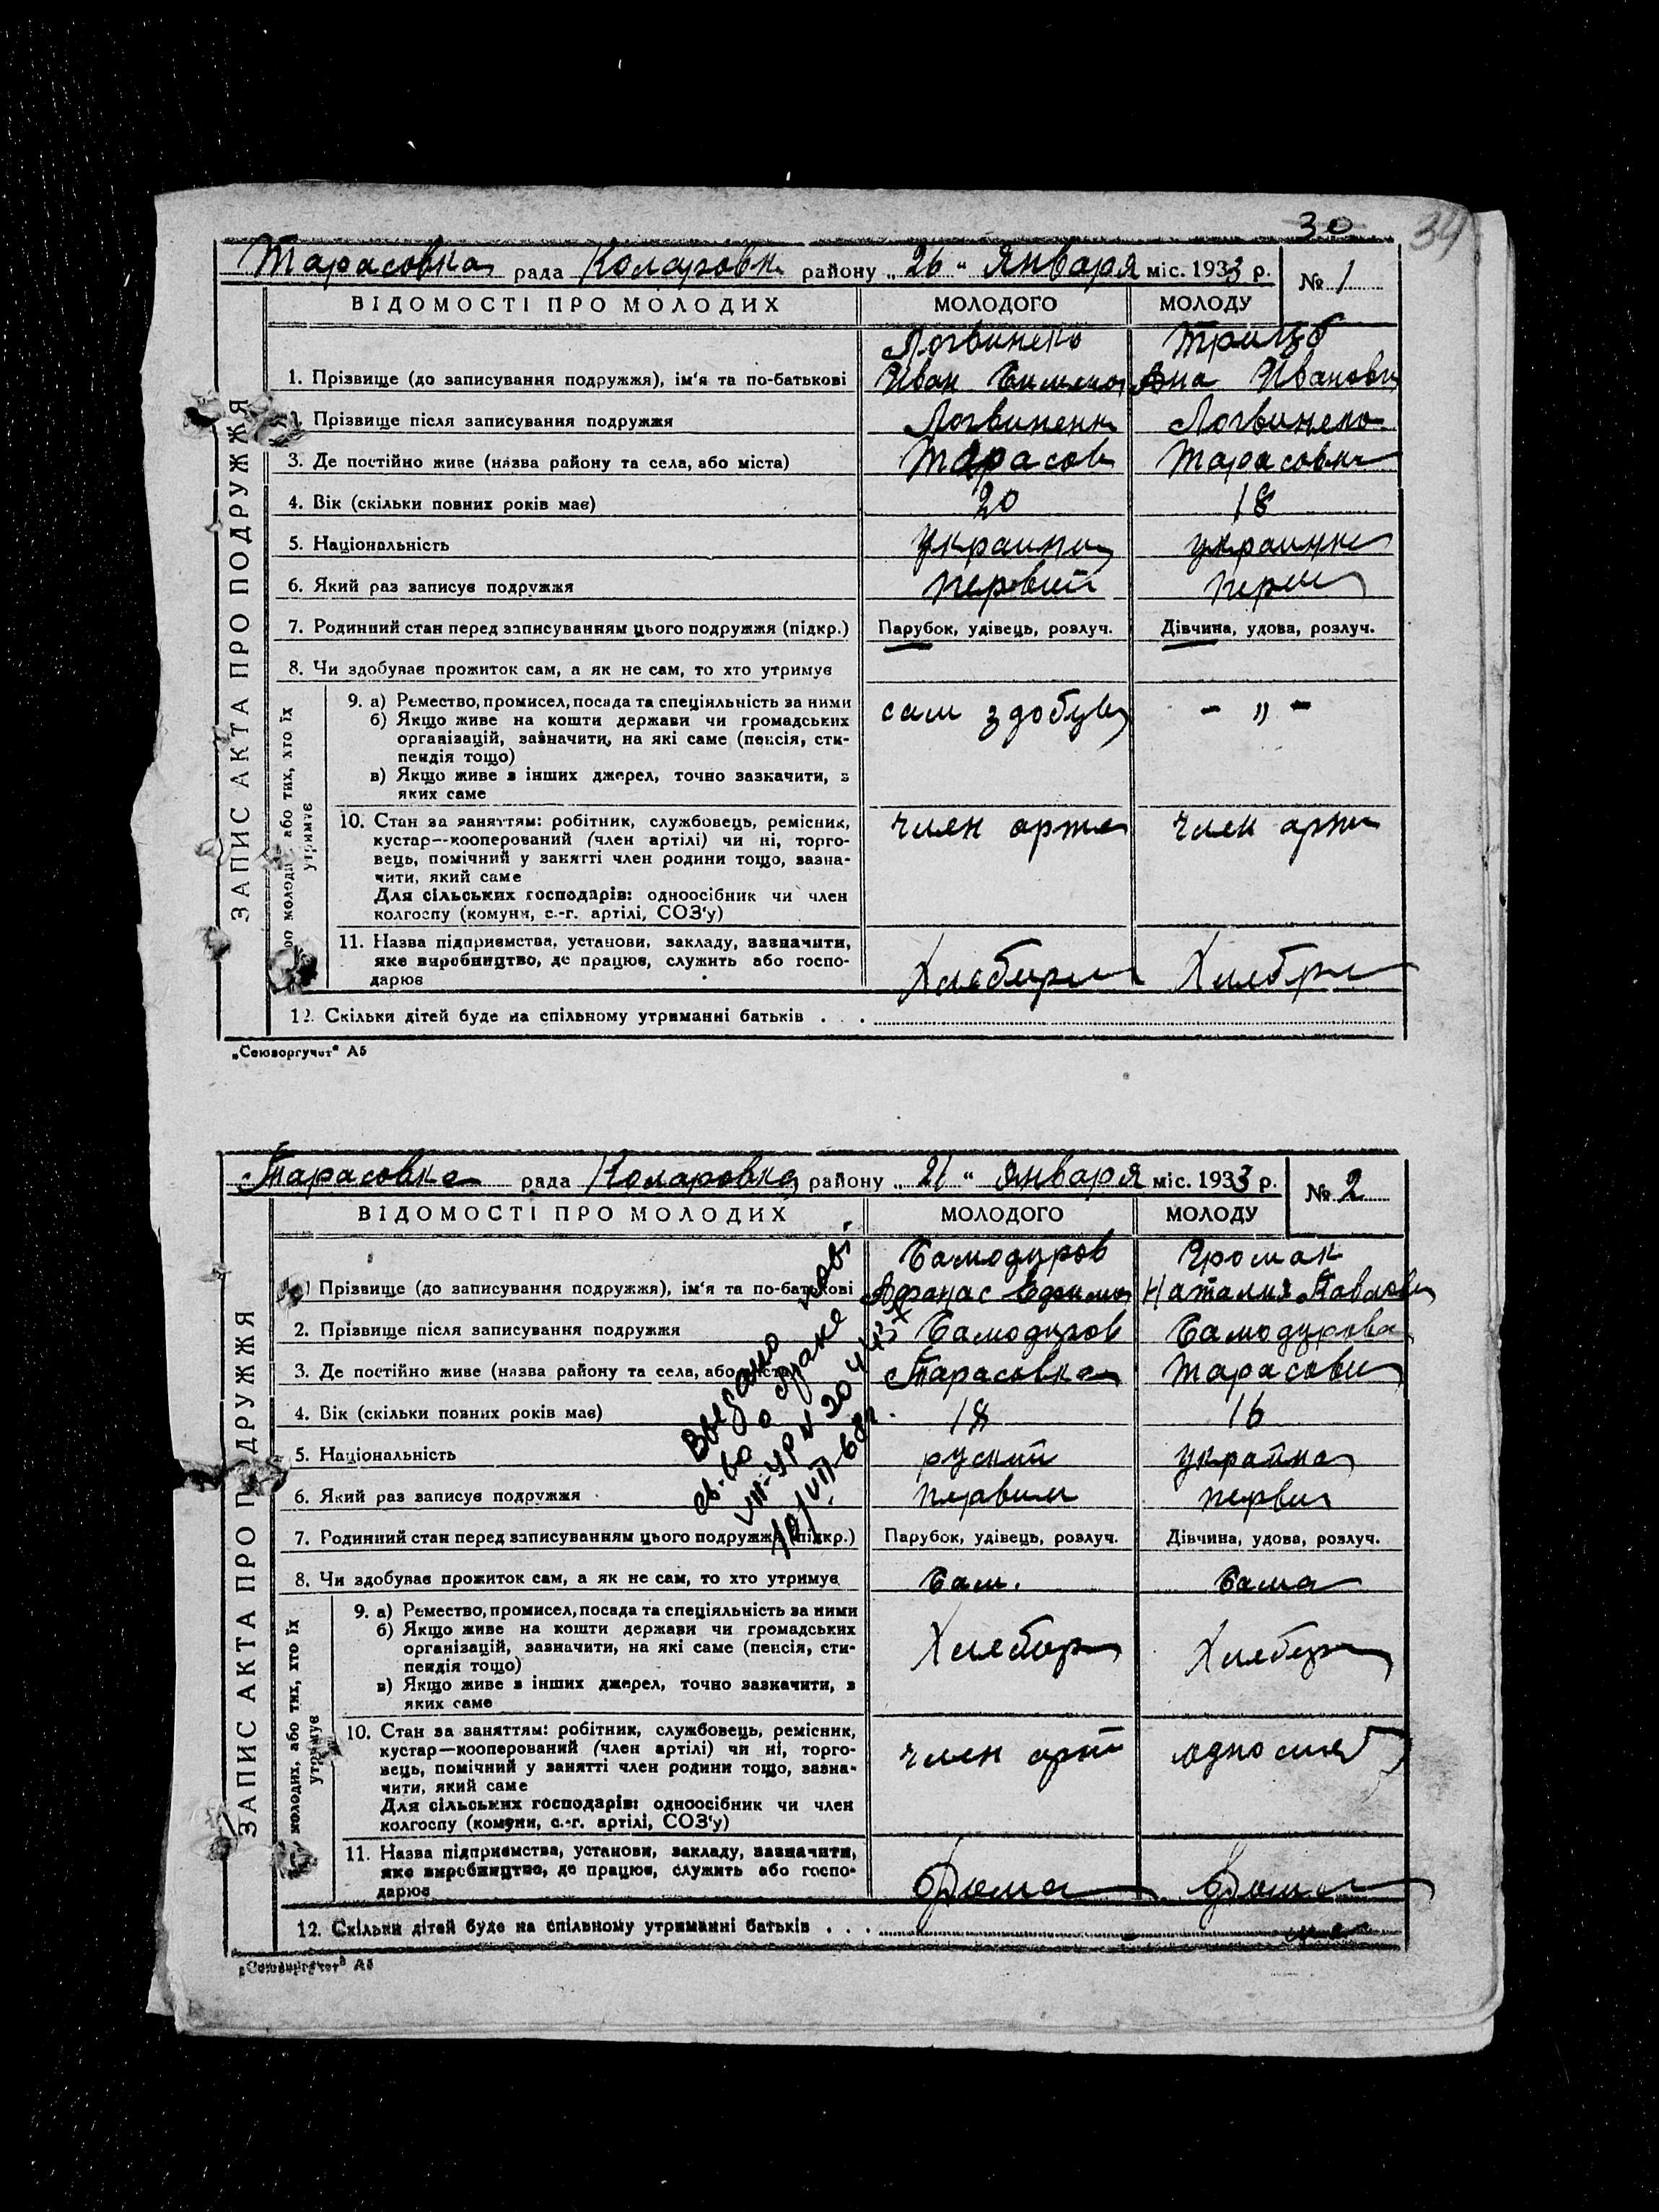 30 34
Тарасовка рада Коларовк району „26“ Января міс. 1933 р. № 1
ВІДОМОСТІ ПРО МОЛОДИХ МОЛОДОГО МОЛОДУ
Логвинеко
1. Прізвище (до записування подружжя), ім'я та по-батькові Иван Ана Иванови
Прізвище після записування подружжя Логвиненк Логвинеко
3. Де постійно живе (назва району та села, або міста) Тарасов Тарасовк
4. Вік (скільки повних років має) 20 18
5. Національність украинц украинк
6. Який раз записує подружжя первий перви
7. Родинний стан перед записуванням цього подружжя (підкр.) Парубок, удівець, розлуч. Дівчина, удова, розлуч.
8. Чи здобуває прожиток сам, а як не сам, то хто утримує
9. а) Ремество, промисел, посада та спеціяльність за ними сам здобув - „ -
б) Якщо живе на кошти держави чи громадських
організацій, зазначити, на які саме (пенсія, сти-
пендія тощо)
в) Якщо живе з інших джерел, точно зазначити, з
яких саме
10. Стан за заняттям: робітник, службовець, ремісник, член арте член арти
кустар—кооперований (член артілі) чи ні, торго-
вець, помічний у занятті член родини тощо, зазна-
чити, який саме
Для сільських господарів: одноосібник чи член
колгоспу (комуни, с.-г. артілі, СОЗ'у)
11. Назва підприємства, установи, закладу, зазначити,
яке виробництво, де працює, служить або госпо-
дарює
12. Скільки дітей буде на спільному утриманні батьків . . .
ЗАПИС АКТА ПРО ПОДРУЖЖЯ
молоди або тих, хто їх
утримує
„Союзоргучот“ А5
Тарасовка рада Коларовка району „21“ Января міс. 1933 р. № 2
ВІДОМОСТІ ПРО МОЛОДИХ МОЛОДОГО МОЛОДУ
Самодуров Громак
1) Прізвище (до записування подружжя), ім'я та по-батькові Афанас Ефимо Наталия Павлови
2. Прізвище після записування подружжя Самодуров Самодурова
3. Де постійно живе (назва району та села, або міста) Тарасовка Тарасовк
4. Вік (скільки повних років має) 18 16
5. Національність руский украйна
6. Який раз записує подружжя первий перви
7. Родинний стан перед записуванням цього подружжя (підкр.) Парубок, удівець, розлуч. Дівчина, удова, розлуч.
8. Чи здобуває прожиток сам, а як не сам, то хто утримує Сам. Сама
9. а) Ремество, промисел, посада та спеціяльність за ними Хлебор Хлебор
б) Якщо живе на кошти держави чи громадських
організацій, зазначити, на які саме (пенсія, сти-
пендія тощо)
в) Якщо живе з інших джерел, точно зазначити, з
яких саме
10. Стан за заняттям: робітник, службовець, ремісник, член арт
кустар—кооперований (член артілі) чи ні, торго-
вець, помічний у занятті член родини тощо, зазна-
чити, який саме
Для сільських господарів: одноосібник чи член
колгоспу (комуни, с.-г. артілі, СОЗ'у)
11. Назва підприємства, установи, закладу, зазначити,
яке виробництво, де працює, служить або госпо-
дарює Дома Дома
12. Скільки дітей буде на спільному утриманні батьків . . .
ЗАПИС АКТА ПРО ПОДРУЖЖЯ
молодих, або тих, хто їх
утримує
св-во о браке
„Союзоргучот“ А5